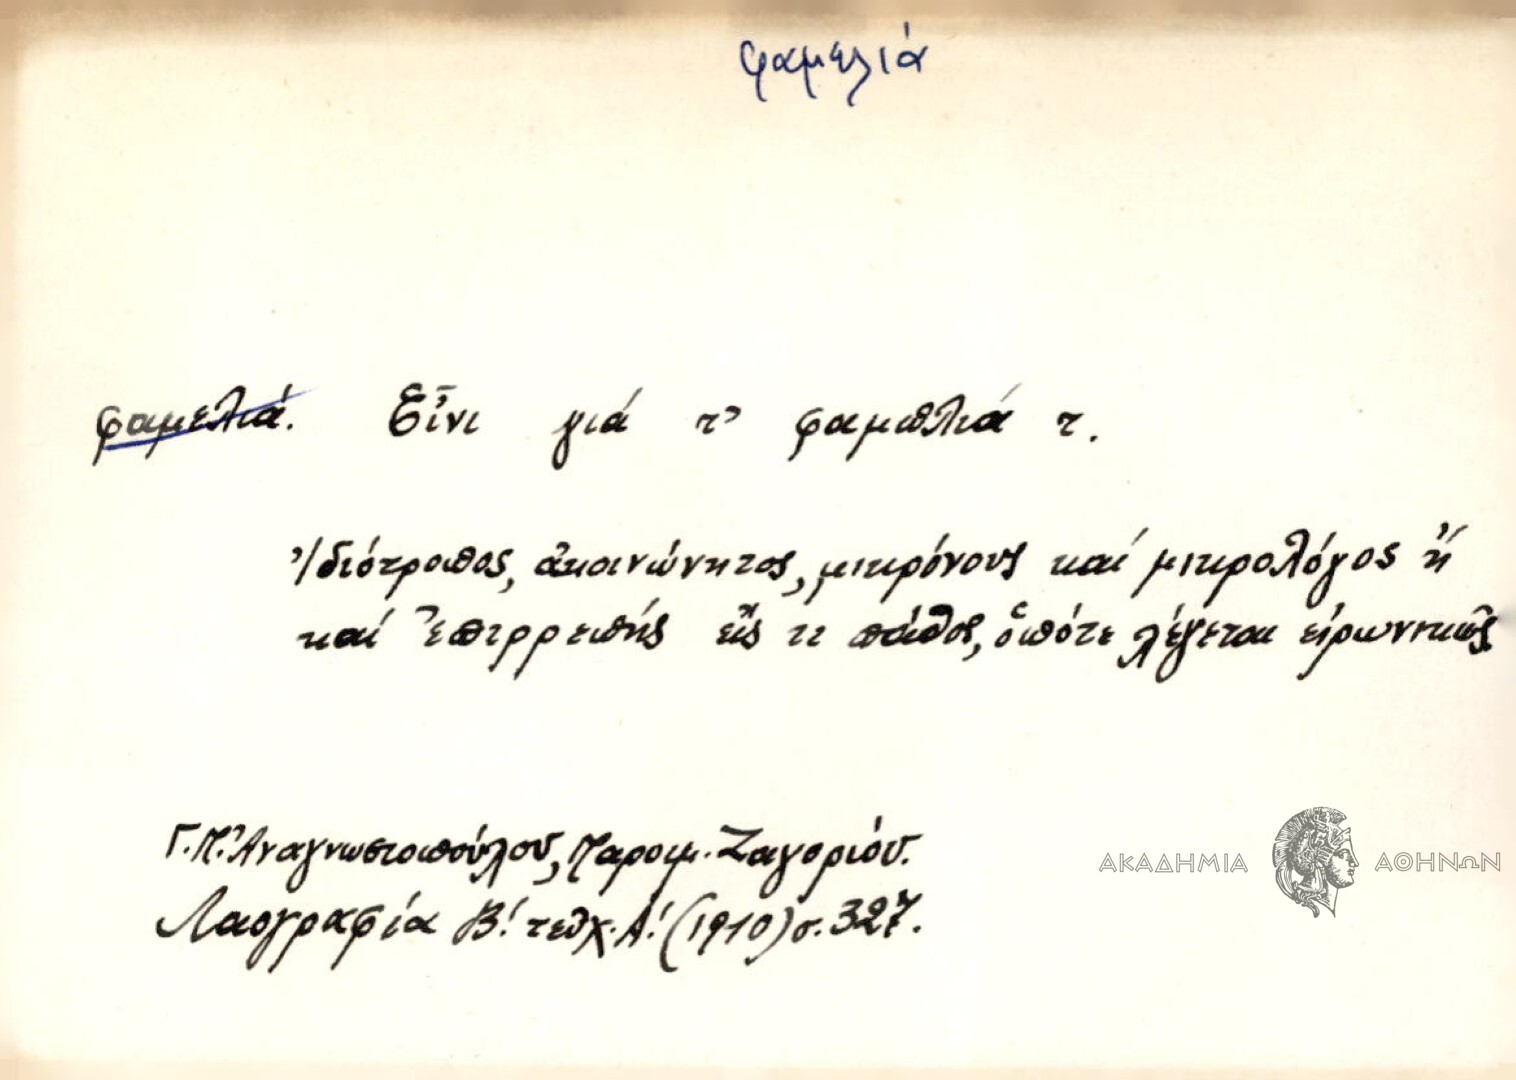 φαμελιά
φαμελιά. Εἶνι γιά τ' φαμιλιά τ.
Ἰδιότροπος, ἀκοινώνητος, μικρόνους καί μικρολόγος ἤ
καί ἐπιρρεπής εἴς τι πάθος, ὁπότε λέγεται εἰρωνικῶς
Γ.Π. Ἀναγνωστοπούλου, Παροιμ. Ζαγορίου.
Λαογραφία Β! τεῦχ. Α! (1910) σ. 327.
ΑΚΑΔΗΜΙΑ ΑΘΗΝΩΝ